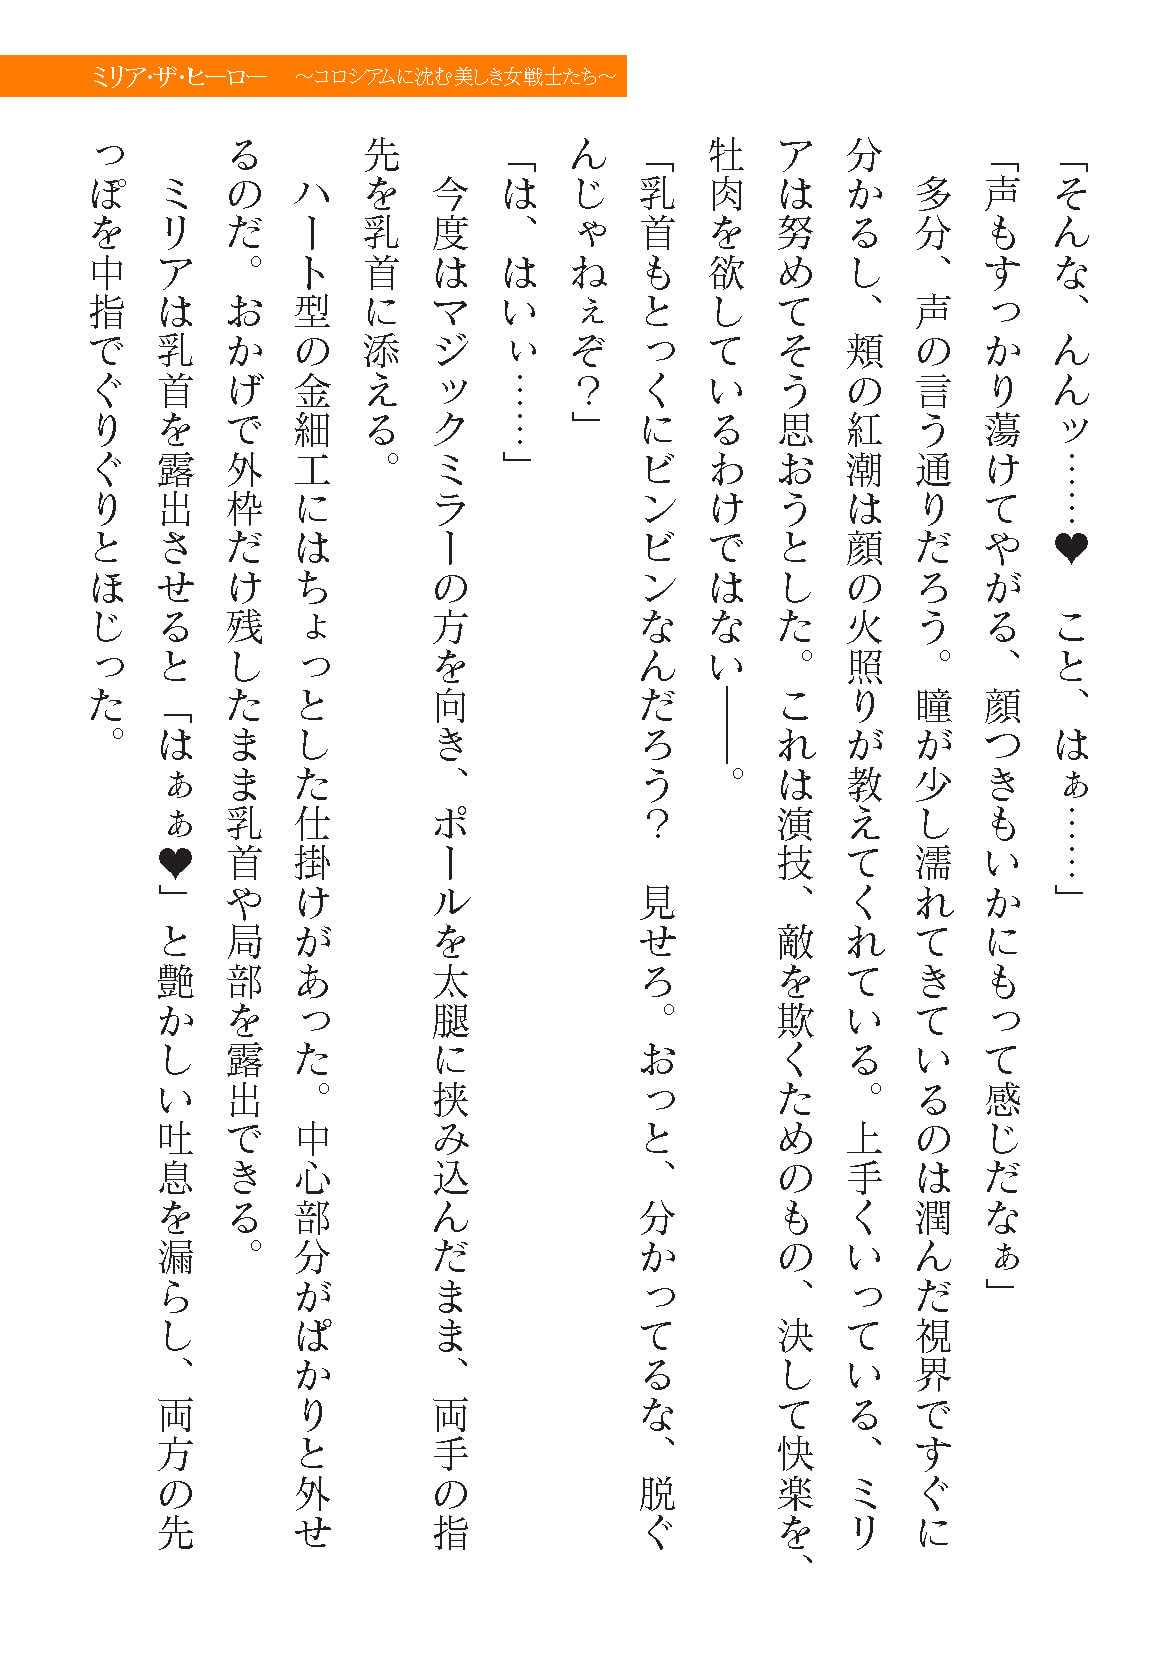 ミリア・ザ・ヒーロー　～コロシアムに沈む美しき女戦士たち～
「そんな、んんッ……♥　こと、はぁ……」
「声もすっかり蕩けてやがる、顔つきもいかにもって感じだなぁ」
　多分、声の言う通りだろう。瞳が少し濡れてきているのは潤んだ視界ですぐに
分かるし、頬の紅潮は顔の火照りが教えてくれている。上手くいっている、ミリ
アは努めてそう思おうとした。これは演技、敵を欺くためのもの、決して快楽を、
牡肉を欲しているわけではない――。
「乳首もとっくにビンビンなんだろう？　見せろ。おっと、分かってるな、脱ぐ
んじゃねぇぞ？」
「は、はいぃ……」
　今度はマジックミラーの方を向き、ポールを太腿に挟み込んだまま、両手の指
先を乳首に添える。
　ハート型の金細工にはちょっとした仕掛けがあった。中心部分がぱかりと外せ
るのだ。おかげで外枠だけ残したまま乳首や局部を露出できる。
　ミリアは乳首を露出させると「はぁぁ♥」と艶かしい吐息を漏らし、両方の先
っぽを中指でぐりぐりとほじった。